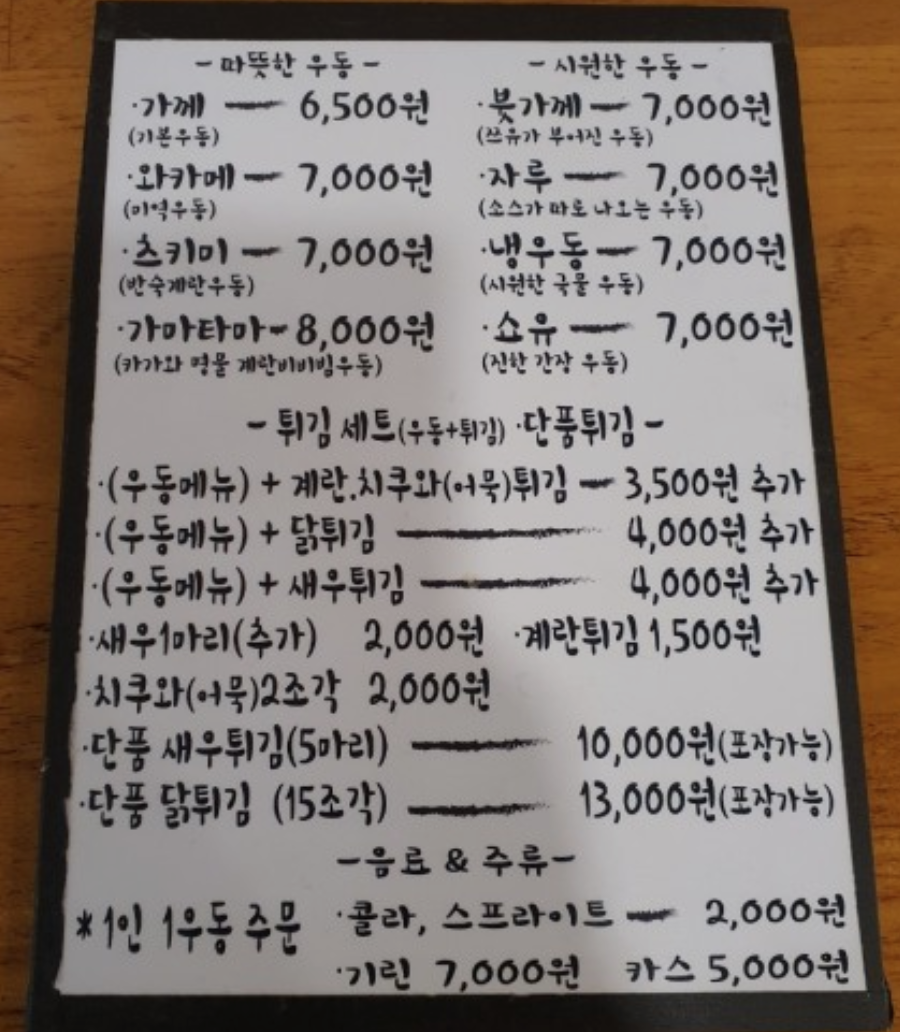 - 따뜻한 우동 -
·가께 — 6,500원
(기본우동)
·와카메 — 7,000원
(미역우동)
·츠키미 — 7,000원
(반숙계란우동)
·가마타마 - 8,000원
(카가와 명물 계란비비빔우동)
- 시원한 우동 -
·붓가께 — 7,000원
(쯔유가 부어진 우동)
·자루 — 7,000원
(소스가 따로 나오는 우동)
·냉우동 — 7,000원
(시원한 국물 우동)
·쇼유 — 7,000원
(진한 간장 우동)
- 튀김 세트(우동+튀김)·단품튀김 -
·(우동메뉴) + 계란.치쿠와(어묵)튀김 — 3,500원 추가
·(우동메뉴) + 닭튀김 — 4,000원 추가
·(우동메뉴) + 새우튀김 — 4,000원 추가
·새우1마리(추가) 2,000원 ·계란튀김 1,500원
·치쿠와(어묵)2조각 2,000원
·단품 새우튀김(5마리) — 10,000원(포장가능)
·단품 닭튀김 (15조각) — 13,000원(포장가능)
- 음료 & 주류 -
*1인 1우동 주문
·콜라, 스프라이트 — 2,000원
·기린 7,000원 카스 5,000원